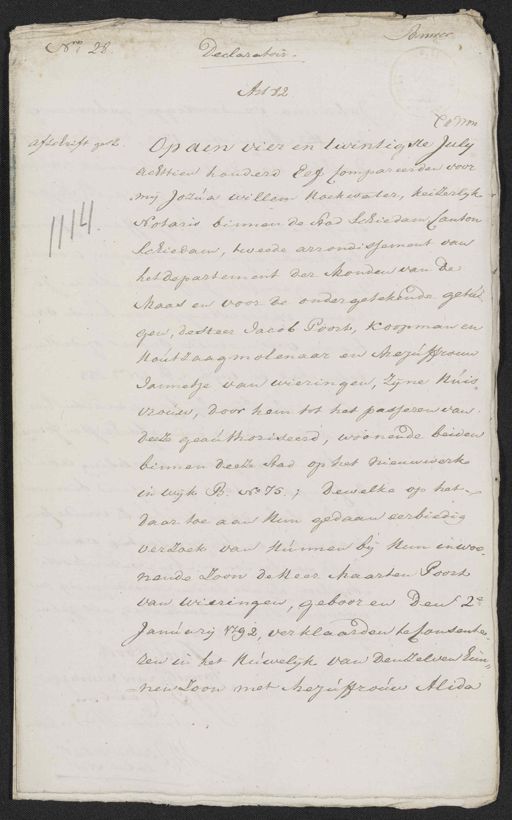 Nro 28.
Declaratoir.
Art 12
afschrift
1114.
Op den vier en twintigste July
achttien honderd Elf Compareerden voor
mij Jozúa willem Hoekwater, Keizerlyk
Notaris binnen de Stad Schiedam, Canton
Schiedam, tweede arrondissement van
het departement der Monden van de
Maas en voor de ondergetekende getui-
gen, de Heer Jacob Poort, Koopman en
Houtzaagmolenaar en Mejúffrouw
Jannetje van wieringen, Zyne Húis
vrouw, door hem tot het passeren van
deeze geaúthoriseerd, woonende beiden
binnen deeze Stad op het Nieuwwerk
in wyk B. No 75; Dewelke op het
daar toe aan Hun gedaan eerbiedig
verzoek van Húnnen bij Hun inwoo-
nende Zoon de Heer Maarten Poort
van wieringen, gebooren Den 2e
Janúarij 1792, verklaarden te Consente-
ren in het Húwelyk van Denzelven Hún-
nen Zoon met Mejúffroúw Alida